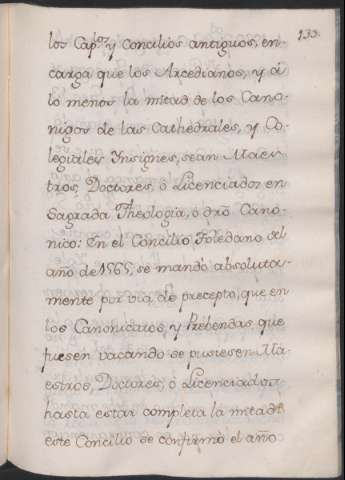 133.
los Cap.los y Concilios antiguos, en-
carga que los Arcedianos, y á
lo menos la mitad de los Cano-
nigos de las Cathedrales, y Co-
legiales Insignes, sean Maes-
tros, Doctores, ò Licenciados en
Sagrada Theologia, ó dro Cano-
nico: En el Concilio Toledano del
año de 1565, se mandó absoluta-
mente por via de precepto, que en
los Canonicatos, y Prebendas, que
fuesen vacando se pusiesen Ma-
estros, Doctores, ó Licenciados
hasta estar completa la mitad:
este Concilio se confirmó el año